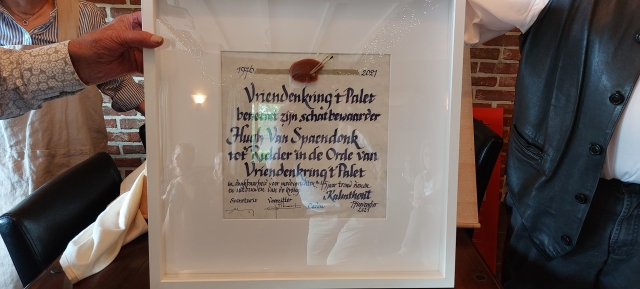 1976 2021
Vriendenkring 't Palet
benoemt zijn schatbewaarder
Hugh Van Spaendonk
tot Ridder in de Orde van
Vriendenkring 't Palet
in dankbaarheid voor jaar trouw
en van de kring Kalmthout
Secretaris Voorzitter 2021